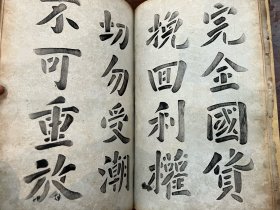 完全國貨
挽回利權
切勿受潮
不可重放